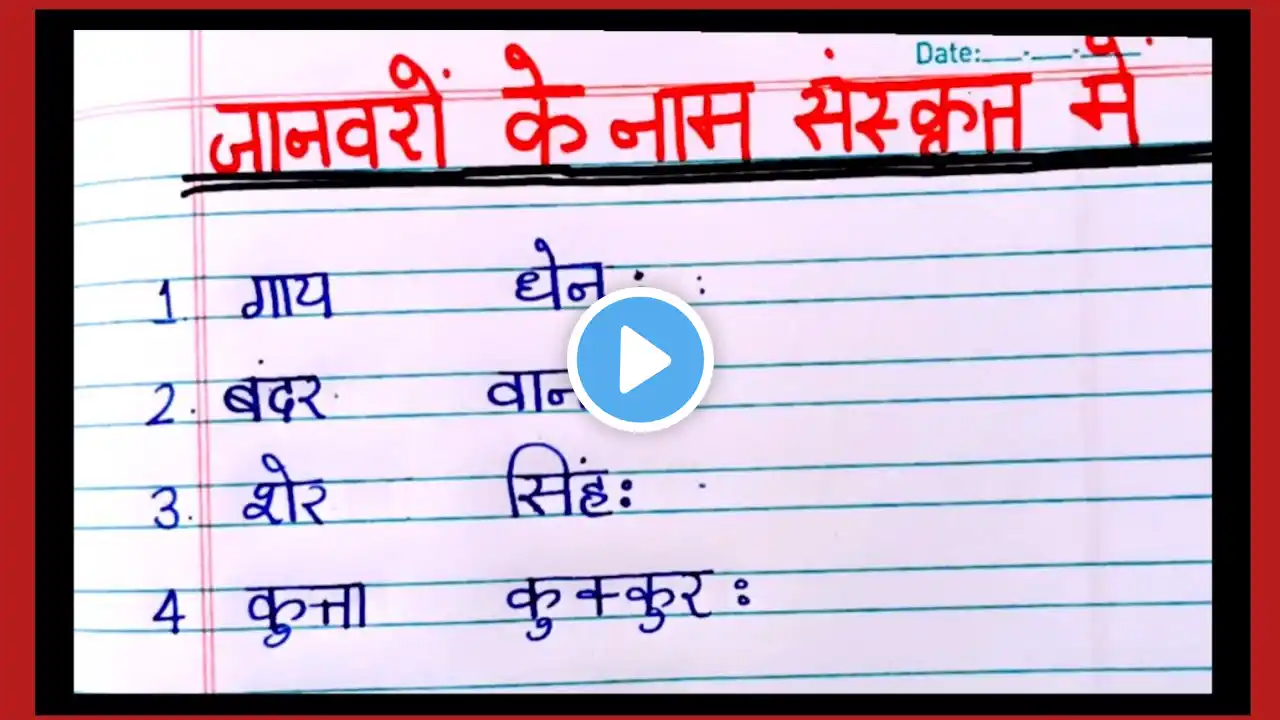 Date:__.__.__
जानवरों के नाम संस्कृत में
1. गाय
2. बंदर
3. शेर सिंह:
4 कुत्ता कुक्कुर: